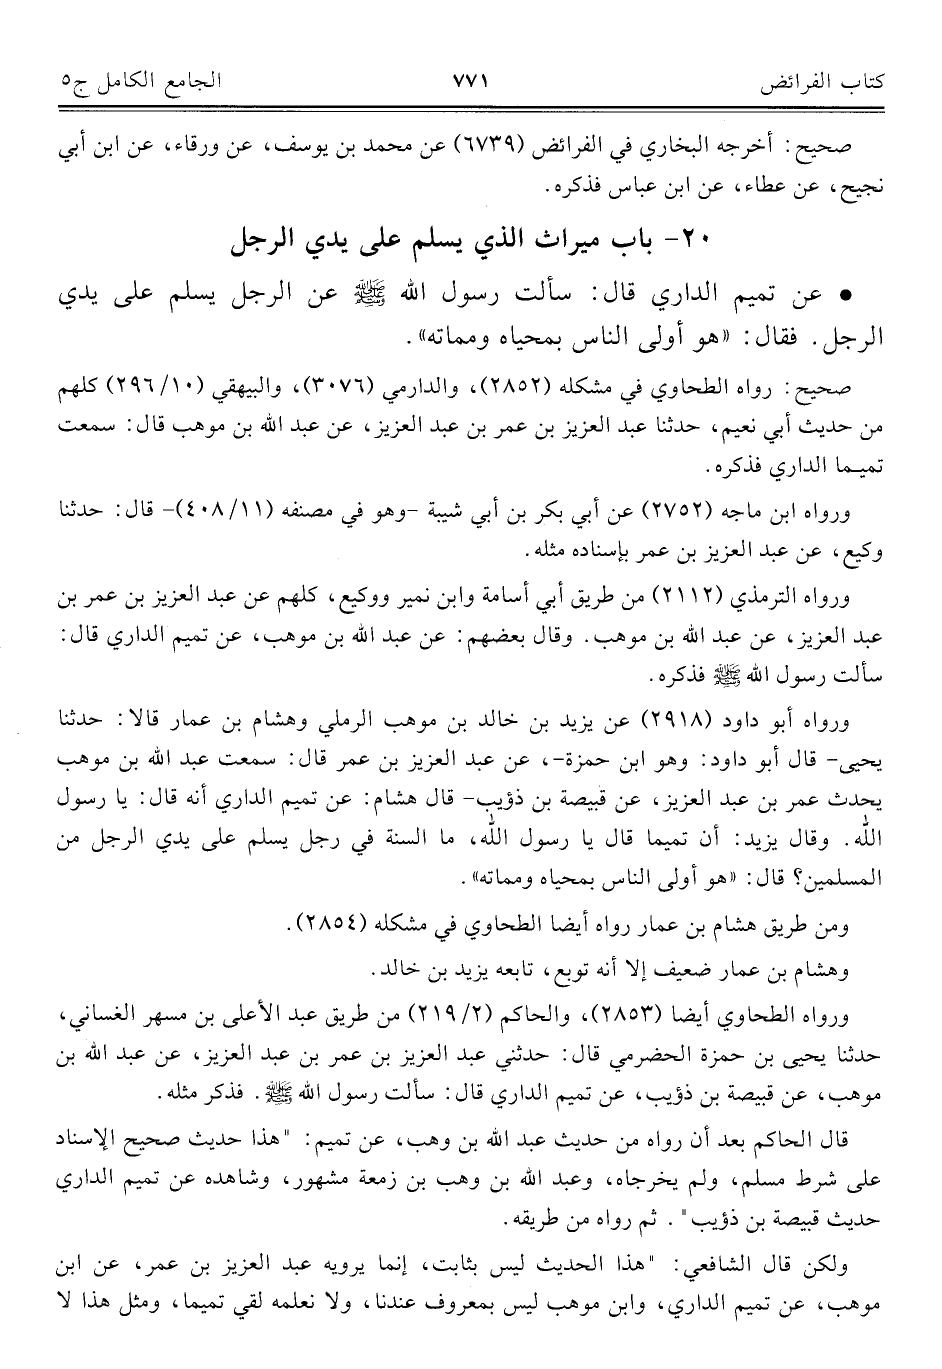 كتاب الفرائض ٧٧١ الجامع الكامل ج٥
صحيح: أخرجه البخاري في الفرائض (٦٧٣٩) عن محمد بن يوسف، عن ورقاء، عن ابن أبي
نجيح، عن عطاء، عن ابن عباس فذكره.
٢٠- باب ميراث الذي يسلم على يدي الرجل
• عن تميم الداري قال: سألت رسول الله ﷺ عن الرجل يسلم على يدي
الرجل. فقال: «هو أولى الناس بمحياه ومماته».
صحيح: رواه الطحاوي في مشكله (٢٨٥٢)، والدارمي (٣٠٧٦)، والبيهقي (١٠/ ٢٩٦) كلهم
من حديث أبي نعيم، حدثنا عبد العزيز بن عمر بن عبد العزيز، عن عبد الله بن موهب قال: سمعت
تميما الداري فذكره.
ورواه ابن ماجه (٢٧٥٢) عن أبي بكر بن أبي شيبة -وهو في مصنفه (١١/ ٤٠٨)- قال: حدثنا
وكيع، عن عبد العزيز بن عمر بإسناده مثله.
ورواه الترمذي (٢١١٢) من طريق أبي أسامة وابن نمير ووكيع، كلهم عن عبد العزيز بن عمر بن
عبد العزيز، عن عبد الله بن موهب. وقال بعضهم: عن عبد الله بن موهب، عن تميم الداري قال:
سألت رسول الله ﷺ فذكره.
ورواه أبو داود (٢٩١٨) عن يزيد بن خالد بن موهب الرملي وهشام بن عمار قالا: حدثنا
يحيى- قال أبو داود: وهو ابن حمزة-، عن عبد العزيز بن عمر قال: سمعت عبد الله بن موهب
يحدث عمر بن عبد العزيز، عن قبيصة بن ذؤيب- قال هشام: عن تميم الداري أنه قال: يا رسول
الله. وقال يزيد: أن تميما قال يا رسول الله، ما السنة في رجل يسلم على يدي الرجل من
المسلمين؟ قال: «هو أولى الناس بمحياه ومماته».
ومن طريق هشام بن عمار رواه أيضا الطحاوي في مشكله (٢٨٥٤).
وهشام بن عمار ضعيف إلا أنه توبع، تابعه يزيد بن خالد.
ورواه الطحاوي أيضا (٢٨٥٣)، والحاكم (٢/ ٢١٩) من طريق عبد الأعلى بن مسهر الغساني،
حدثنا يحيى بن حمزة الحضرمي قال: حدثني عبد العزيز بن عمر بن عبد العزيز، عن عبد الله بن
موهب، عن قبيصة بن ذؤيب، عن تميم الداري قال: سألت رسول الله ﷺ. فذكر مثله.
قال الحاكم بعد أن رواه من حديث عبد الله بن وهب، عن تميم: "هذا حديث صحيح الإسناد
على شرط مسلم، ولم يخرجاه، وعبد الله بن وهب بن زمعة مشهور، وشاهده عن تميم الداري
حديث قبيصة بن ذؤيب". ثم رواه من طريقه.
ولكن قال الشافعي: "هذا الحديث ليس بثابت، إنما يرويه عبد العزيز بن عمر، عن ابن
موهب، عن تميم الداري، وابن موهب ليس بمعروف عندنا، ولا نعلمه لقي تميما، ومثل هذا لا